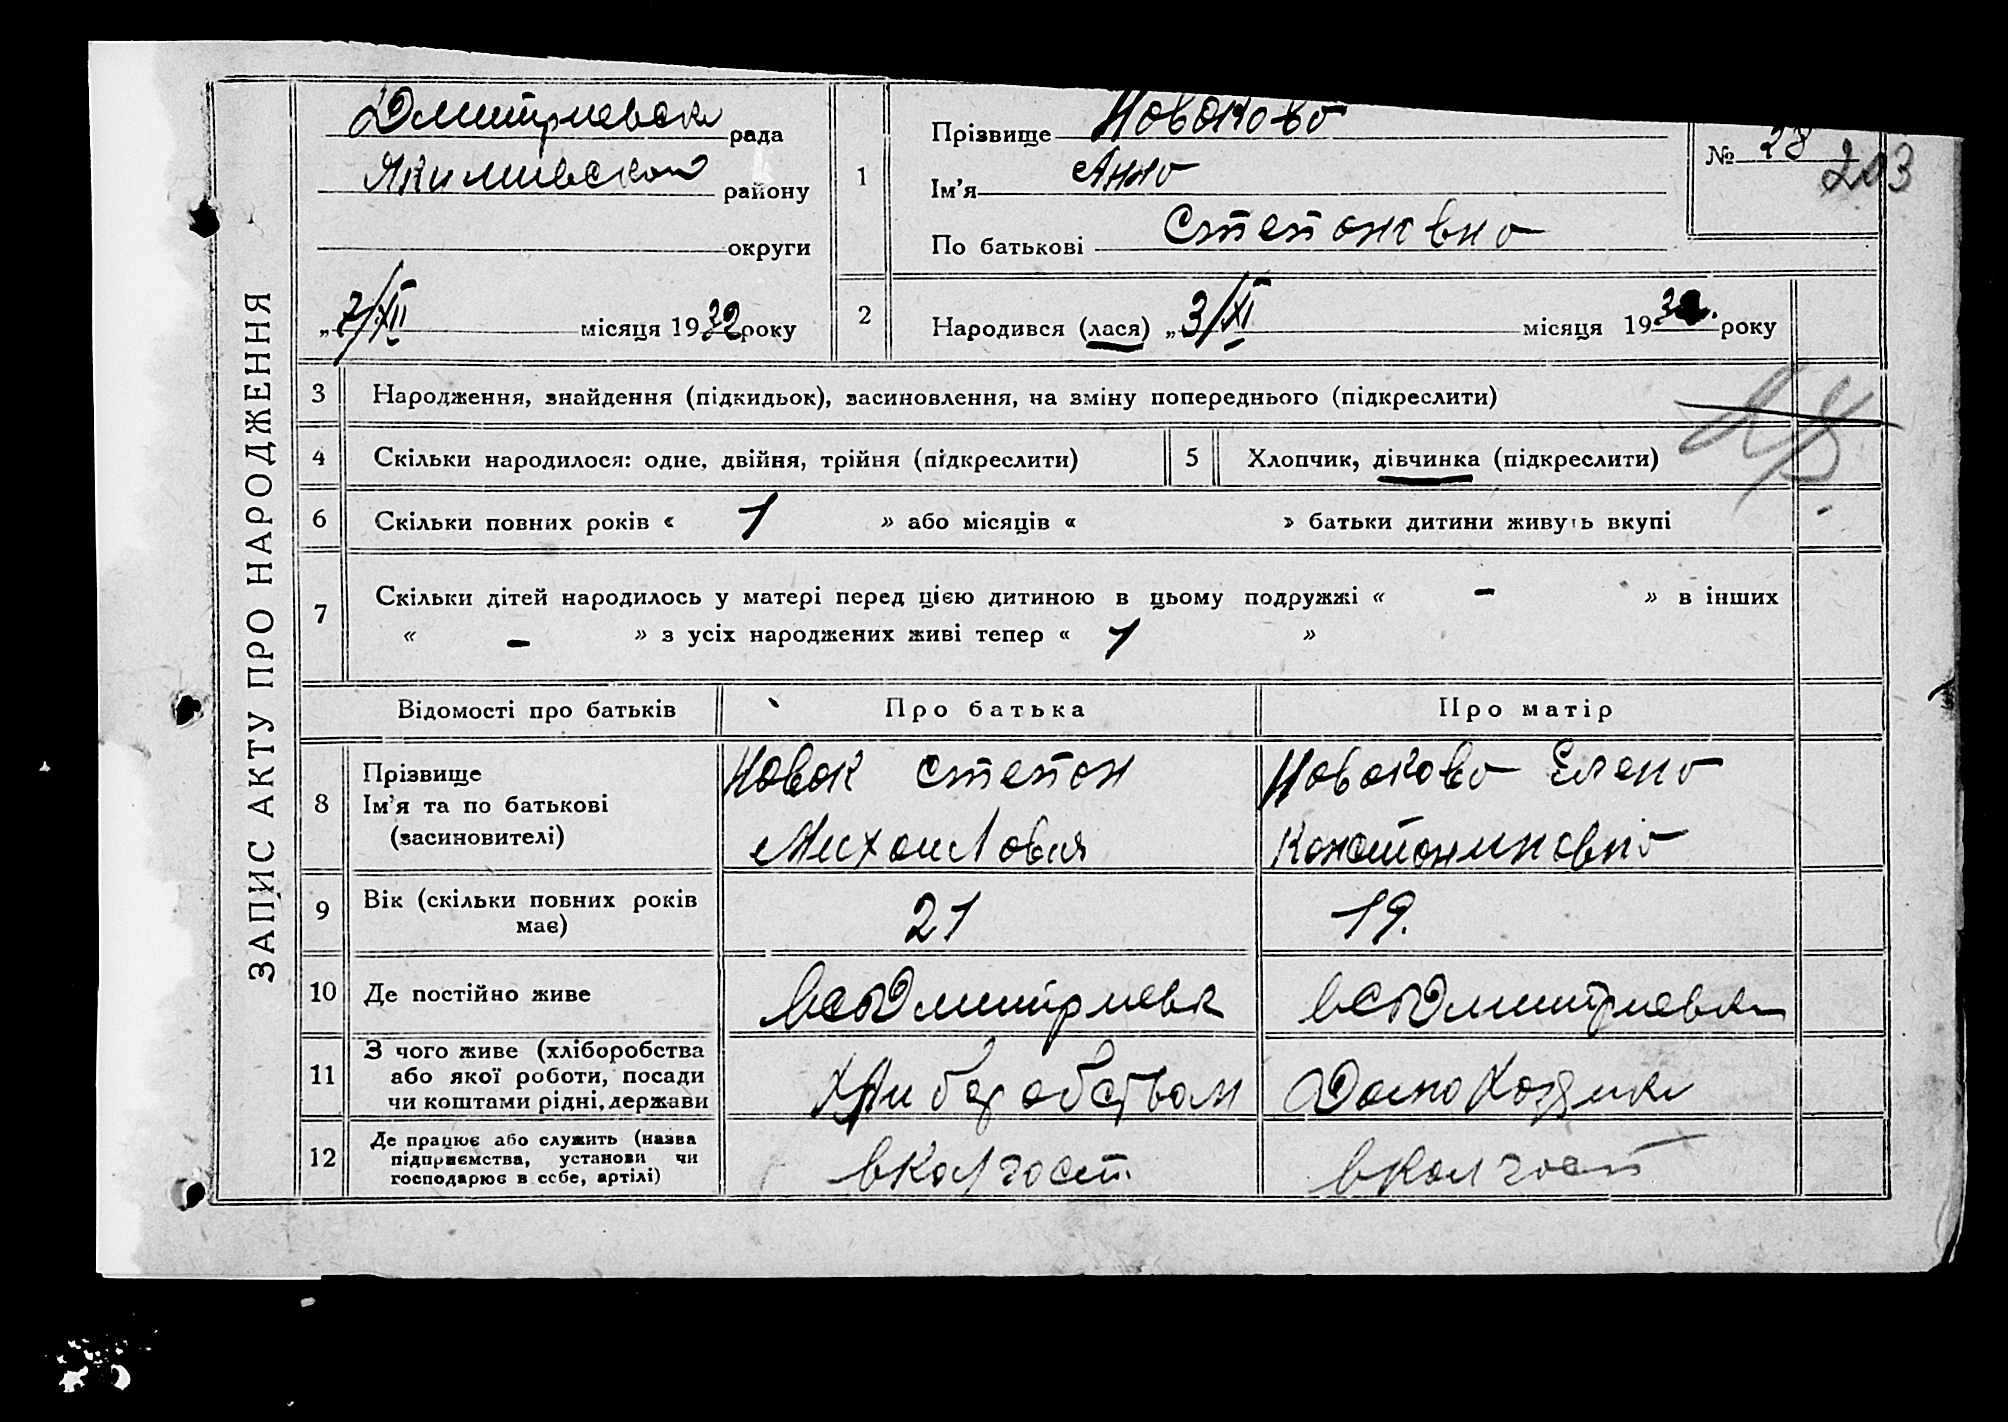 ЗАПИС АКТУ ПРО НАРОДЖЕННЯ
Дмитриевск рада
Якимивской району
округи
„7/XII місяця 1932 року
1
Прізвище Новакова
Ім'я Анна
По батькові Степановна
№ 28
203
2
Народився (лася) „3/XI місяця 1932. року
3 Народження, знайдення (підкидьок), засиновлення, на зміну попереднього (підкреслити)
4 Скільки народилося: одне, двійня, трійня (підкреслити) 5 Хлопчик, дівчинка (підкреслити)
6 Скільки повних років « 1 » або місяців « » батьки дитини живуть вкупі
7 Скільки дітей народилось у матері перед цією дитиною в цьому подружжі « - » в інших
« - » з усіх народжених живі тепер « 1 »
Відомості про батьків Про батька Про матір
8 Прізвище
Ім'я та по батькові
(засиновителі)
Новак Степан
Михайлович
Новакова Елена
Констонтиновна
9 Вік (скільки повних років
має)
21
19.
10 Де постійно живе
Дмитриевк
Дмитриевк
11 З чого живе (хліборобства
або якої роботи, посади
чи коштами рідні, держави
Хлиборобством
Домохозяйк
12 Де працює або служить (назва
підприємства, установи чи
господарює в себе, артілі)
в Колгосп.
в Колгосп